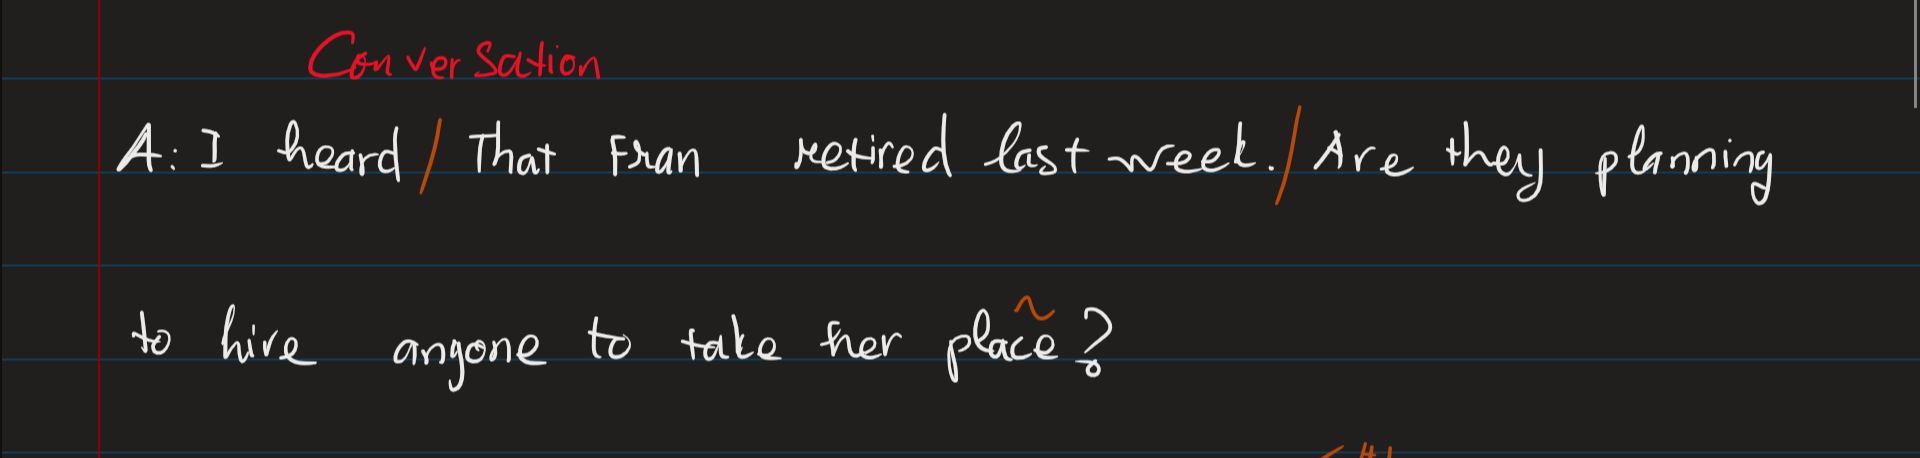 Conversation
A: I heard / That Fran retired last week. / Are they planning
to hire angone to take her place?